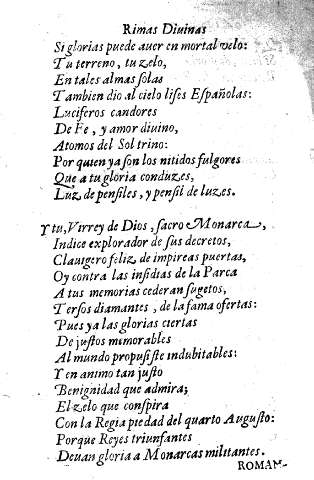 Rimas Diuinas
Si glorias puede auer en mortal velo:
Tu terreno, tu zelo,
En tales almas solas
Tambien dio al cielo lises Españolas:
Luciferos candores
De Fe, y amor diuino,
Atomos del Sol trino:
Por quien ya son los nitidos fulgores
Que a tu gloria conduzes,
Luz de pensiles, y pensil de luzes.
Y tu, Virrey de Dios, sacro Monarca,
Indice explorador de sus decretos,
Clauigero feliz de impireas puertas,
Oy contra las insidias de la Parca
A tus memorias cederan sugetos,
Tersos diamantes, de la fama ofertas:
Pues ya las glorias ciertas
De justos memorables
Al mundo propusiste indubitables:
Y en animo tan justo
Benignidad que admira;
El zelo que conspira
Con la Regia piedad del quarto Augusto:
Porque Reyes triunfantes
Deuan gloria a Monarcas militantes.
ROMAN-